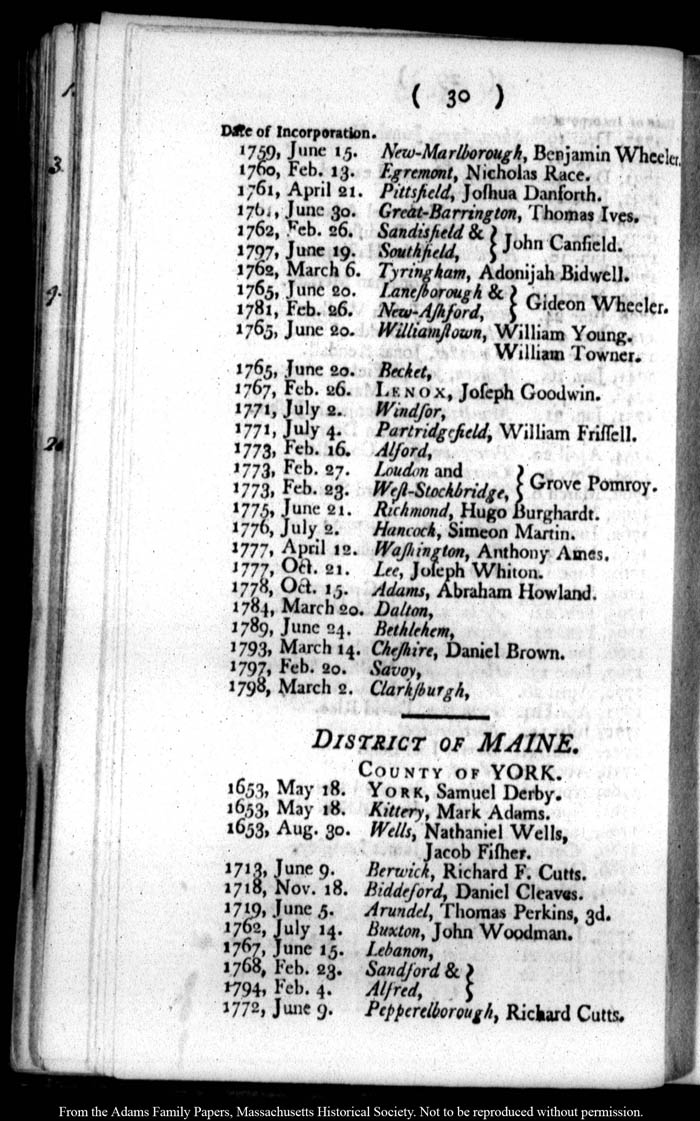 ( 30 )
Date of Incorporation.
1759, June 15. New-Marlborough, Benjamin Wheeler.
1760, Feb. 13. Egremont, Nicholas Race.
1761, April 21. Pittsfield, Joſhua Danforth.
1761, June 30. Great-Barrington, Thomas Ives.
1762, Feb. 26. Sandisfield & } John Canfield.
1797, June 19. Southfield,
1762, March 6. Tyringham, Adonijah Bidwell.
1765, June 20. Laneſborough & } Gideon Wheeler.
1781, Feb. 26. New-Aſhford,
1765, June 20. Williamſtown, William Young.
William Towner.
1765, June 20. Becket,
1767, Feb. 26. LENOX, Joſeph Goodwin.
1771, July 2. Windſor,
1771, July 4. Partridgefield, William Friſſell.
1773, Feb. 16. Alford,
1773, Feb. 27. Loudon and } Grove Pomroy.
1773, Feb. 23. Weſt-Stockbridge,
1775, June 21. Richmond, Hugo Burghardt.
1776, July 2. Hancock, Simeon Martin.
1777, April 12. Waſhington, Anthony Ames.
1777, Oct. 21. Lee, Joſeph Whiton.
1778, Oct. 15. Adams, Abraham Howland.
1784, March 20. Dalton,
1789, June 24. Bethlehem,
1793, March 14. Cheſhire, Daniel Brown.
1797, Feb. 20. Savoy,
1798, March 2. Clarkſburgh,
DISTRICT OF MAINE.
COUNTY OF YORK.
1653, May 18. YORK, Samuel Derby.
1653, May 18. Kittery, Mark Adams.
1653, Aug. 30. Wells, Nathaniel Wells,
Jacob Fiſher.
1713, June 9. Berwick, Richard F. Cutts.
1718, Nov. 18. Biddeford, Daniel Cleaves.
1719, June 5. Arundel, Thomas Perkins, 3d.
1762, July 14. Buxton, John Woodman.
1767, June 15. Lebanon,
1768, Feb. 23. Sandford & }
1794, Feb. 4. Alfred,
1772, June 9. Pepperelborough, Richard Cutts.
From the Adams Family Papers, Massachusetts Historical Society. Not to be reproduced without permission.